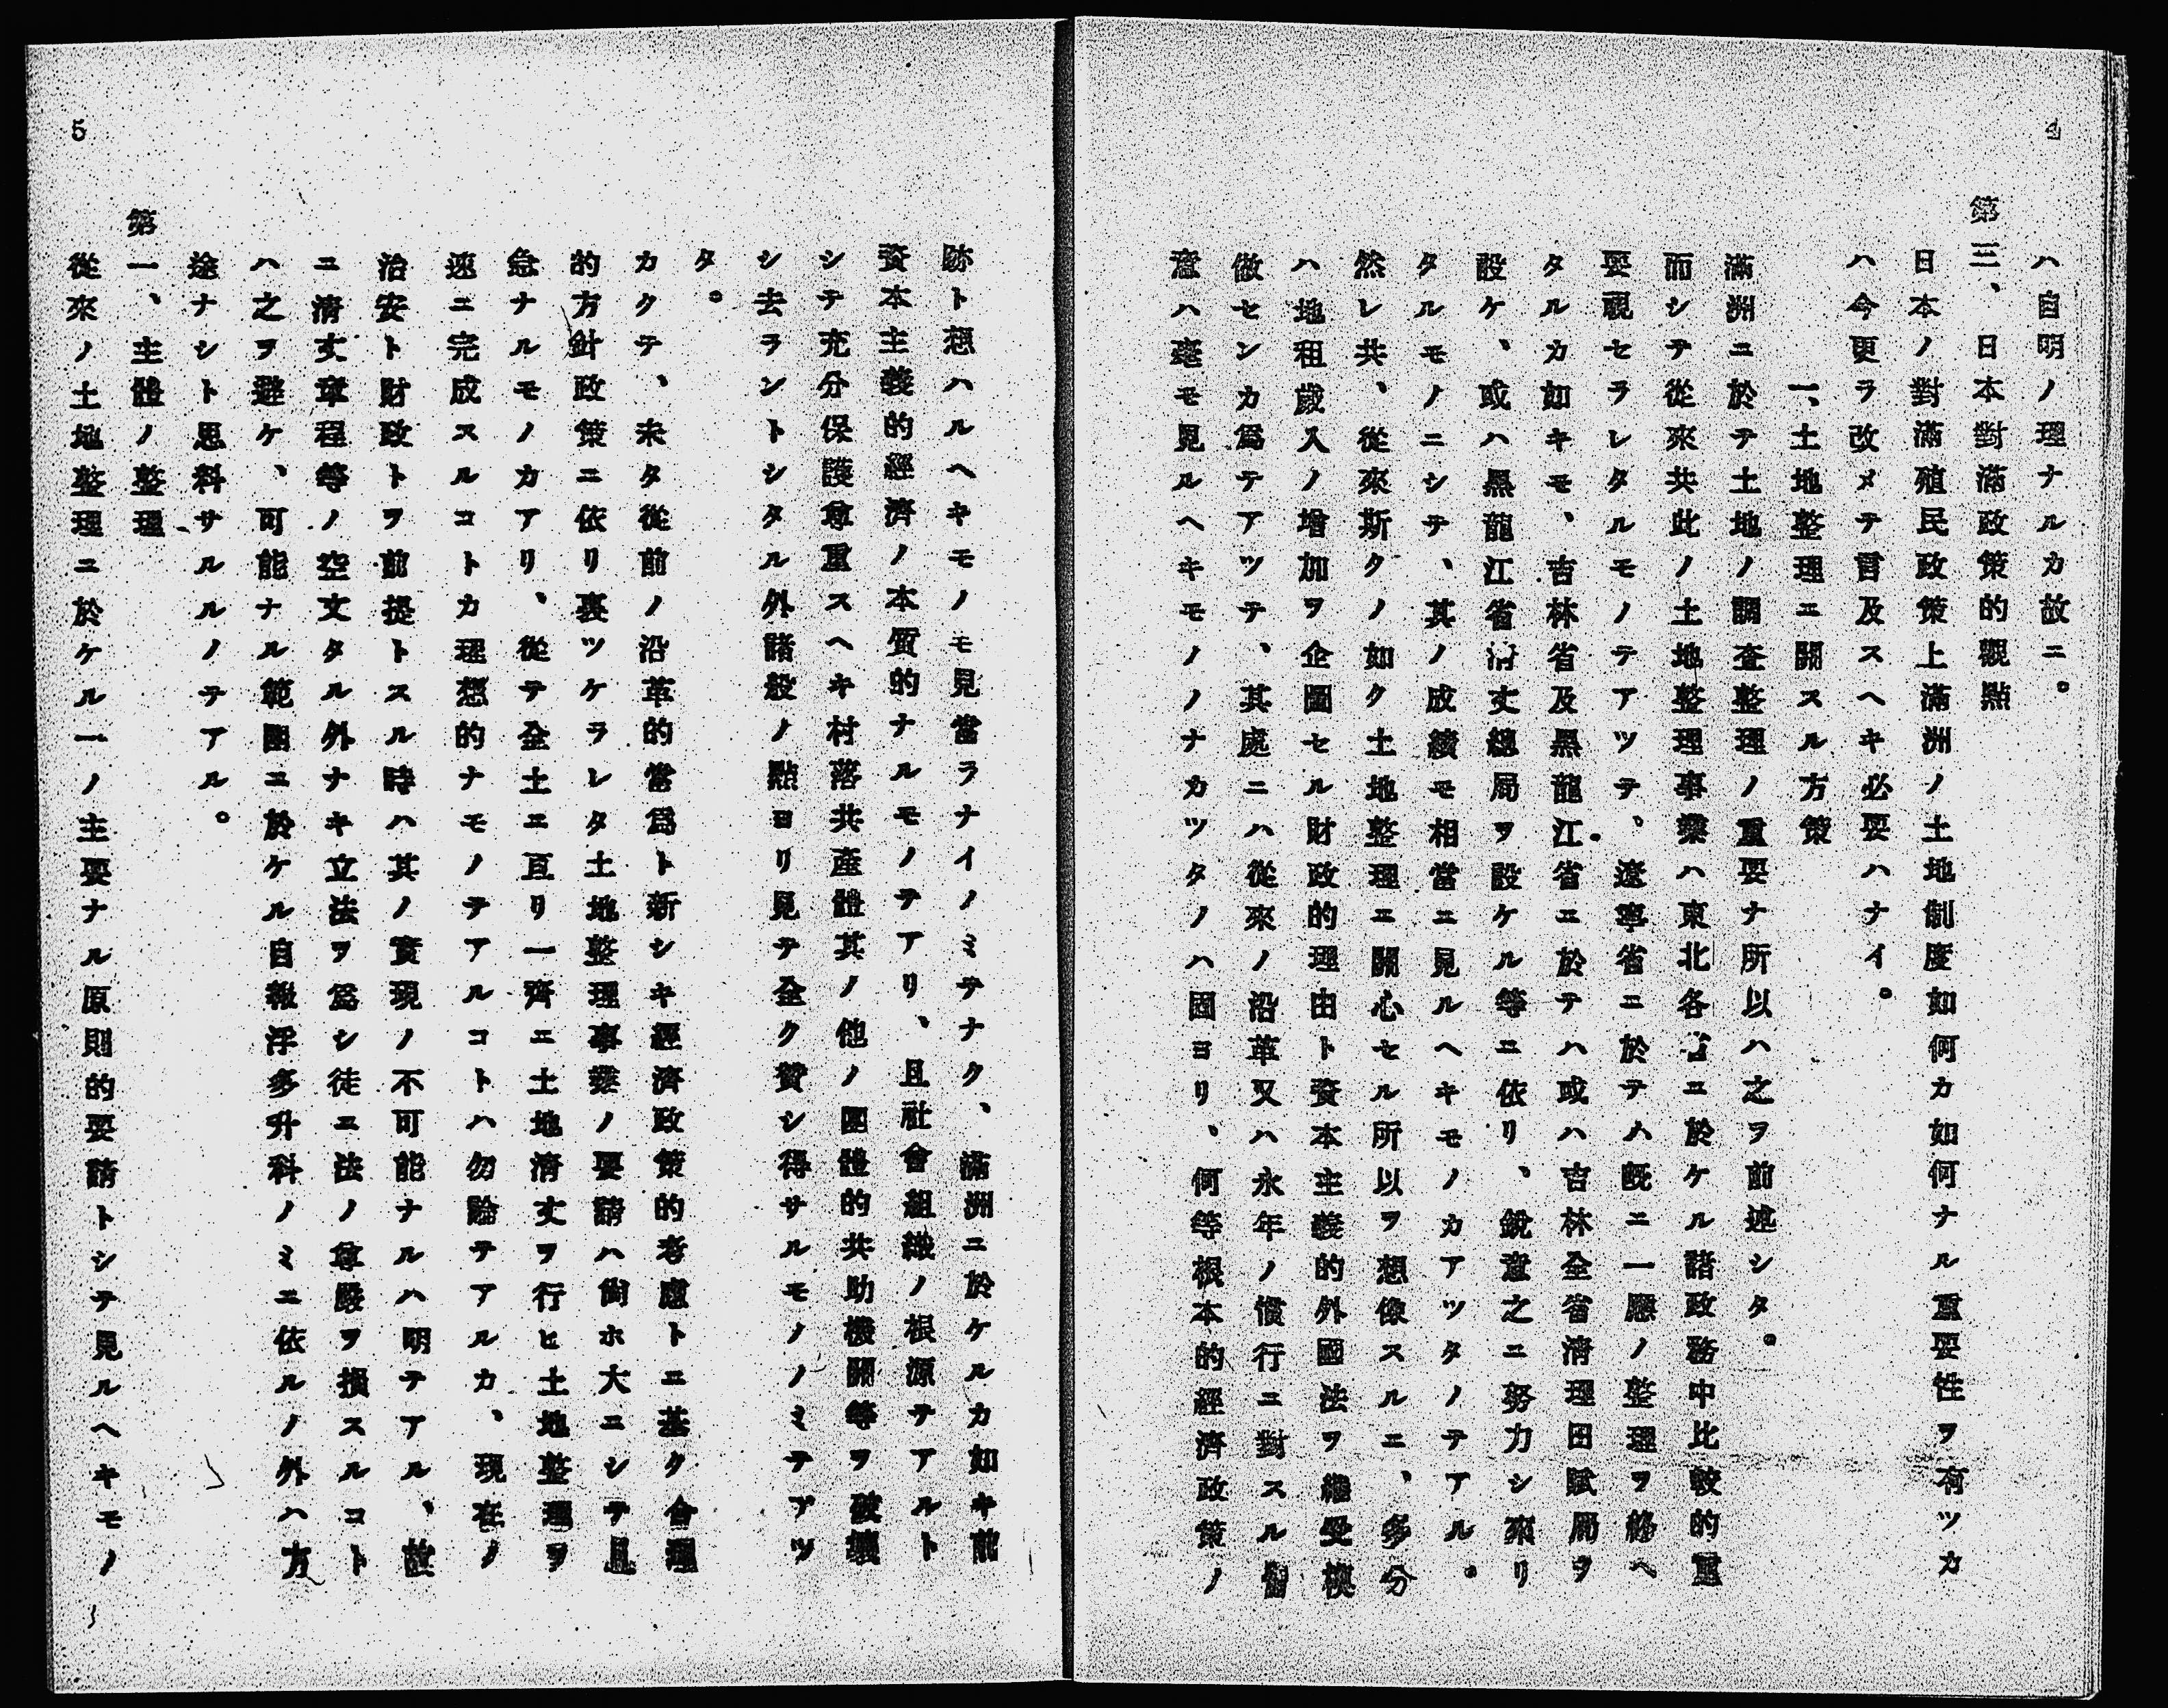 4
ハ自明ノ理ナルカ故ニ。
第三、日本對滿政策的觀點
日本ノ對滿殖民政策上滿洲ノ土地制度如何カ如何ナル重要性ヲ有ツカ
ハ今更ラ改メテ言及スヘキ必要ハナイ。
一、土地整理ニ關スル方策
滿洲ニ於テ土地ノ調査整理ノ重要ナ所以ハ之ヲ前述シタ。
而シテ從來共此ノ土地整理事業ハ東北各省ニ於ケル諸政務中比較的重
要視セラレタルモノテアツテ、遼寧省ニ於テハ既ニ一應ノ整理ヲ終ヘ
タルカ如キモ、吉林省及黑龍江省ニ於テハ或ハ吉林全省淸理田賦局ヲ
設ケ、或ハ黑龍江省淸丈總局ヲ設ケル等ニ依リ、銳意之ニ努力シ來リ
タルモノニシテ、其ノ成績モ相當ニ見ルヘキモノカアツタノテアル。
然レ共、從來斯クノ如ク土地整理ニ關心セル所以ヲ想像スルニ、多分
ハ地租歲入ノ增加ヲ企圖セル財政的理由ト資本主義的外國法ヲ繼受模
倣センカ爲テアツテ、其處ニハ從來ノ沿革又ハ永年ノ慣行ニ對スル留
意ハ毫モ見ルヘキモノノナカツタノハ固ヨリ、何等根本的經濟政策ノ
5
跡ト想ハルヘキモノモ見當ラナイノミテナク、滿洲ニ於ケルカ如キ前
資本主義的經濟ノ本質的ナルモノテアリ、且社會組織ノ根源テアルト
シテ充分保護尊重スヘキ村落共產體其ノ他ノ團體的共助機關等ヲ破壞
シ去ラントシタル外諸般ノ點ヨリ見テ全ク贊シ得サルモノノミテアツ
タ。
カクテ、未タ從前ノ沿革的當爲ト新シキ經濟政策的考慮トニ基ク合理
的方針政策ニ依リ裏ツケラレタ土地整理事業ノ要請ハ尙ホ大ニシテ且
急ナルモノカアリ、從テ全土ニ亘リ一齊ニ土地淸丈ヲ行ヒ土地整理ヲ
速ニ完成スルコトカ理想的ナモノテアルコトハ勿論テアルカ、現在ノ
治安ト財政トヲ前提トスル時ハ其ノ實現ノ不可能ナルハ明テアル、故
ニ淸丈章程等ノ空文タル外ナキ立法ヲ爲シ徒ニ法ノ尊嚴ヲ損スルコト
ハ之ヲ避ケ、可能ナル範圍ニ於ケル自報浮多升科ノミニ依ルノ外ハ方
途ナシト思料サルルノテアル。
第一、主體ノ整理
從來ノ土地整理ニ於ケル一ノ主要ナル原則的要請トシテ見ルヘキモノ